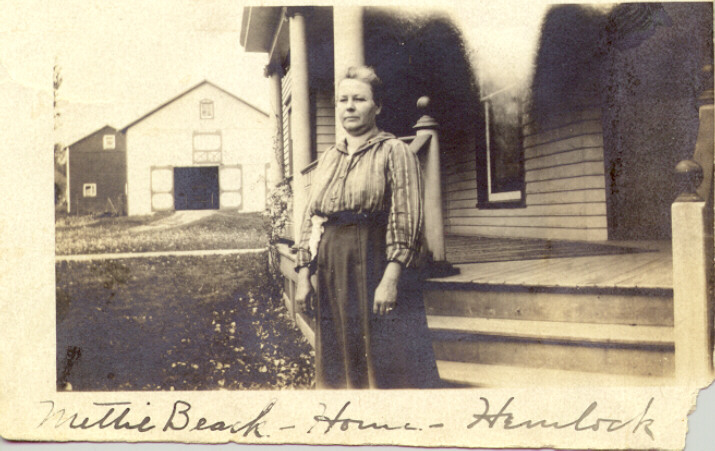 Mettie Beach - Home - Hemlock